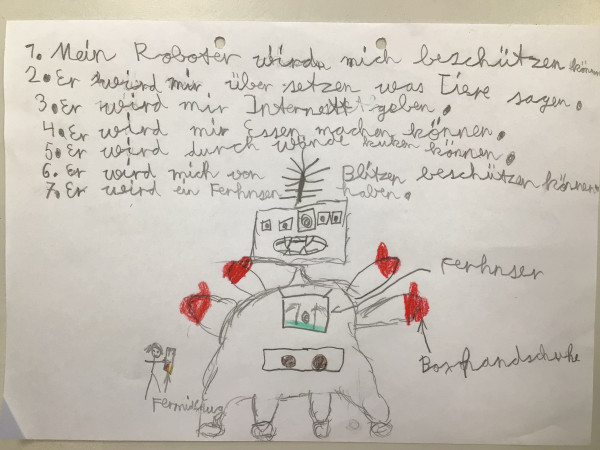 1. Mein Roboter wird mich beschützen könn
2. Er wird mir über setzen was Tiere sagen.
3. Er wird mir Internett geben.
4. Er wird mir Essen machen können.
5. Er wird durch wände kuken können.
6. Er wird mich von Blitzen beschützen können.
7. Er wird ein Ferhnsen haben.
Ferhnser
Boxhandschuhe